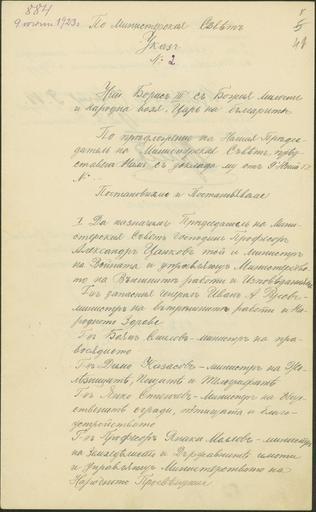 884
9 юний 1923 г.
По Министерския Съветъ
Указъ
№ 2
Ний Борисъ III съ Божия милость
и народна воля, Царь на българитѣ
По предложение на Нашия Предсе-
датель на Министерския Съветъ, пред-
ставено Намъ съ доклада му отъ 9 юний т.г.
№ -
Постановихме и Постановяваме
I. Да назначимъ Председатель на Мини-
стерския Съветъ господинъ Професоръ
Александъръ Цанковъ той и министъръ
на Войната и управляющъ Министерство-
то на Външнитѣ работи и Изповѣданията
Г-нъ запасния генералъ Иванъ Русевъ -
министъръ на вътрѣшнитѣ работи и На-
родното Здраве
Г-нъ Боянъ Смиловъ - министъръ на пра-
восѫдието
Г-нъ Димо Казасовъ - министъръ на Же-
лѣзницитѣ, Пощитѣ и Телеграфитѣ
Г-нъ Янко Стоенчевъ - министъръ на Общ-
ественитѣ сгради, пѫтищата и благо-
устройството
Г-нъ Професоръ Янаки Молловъ - министъръ
на Земледѣлието и Държавнитѣ имоти
и управляющъ Министерството на
Народното Просвѣщение